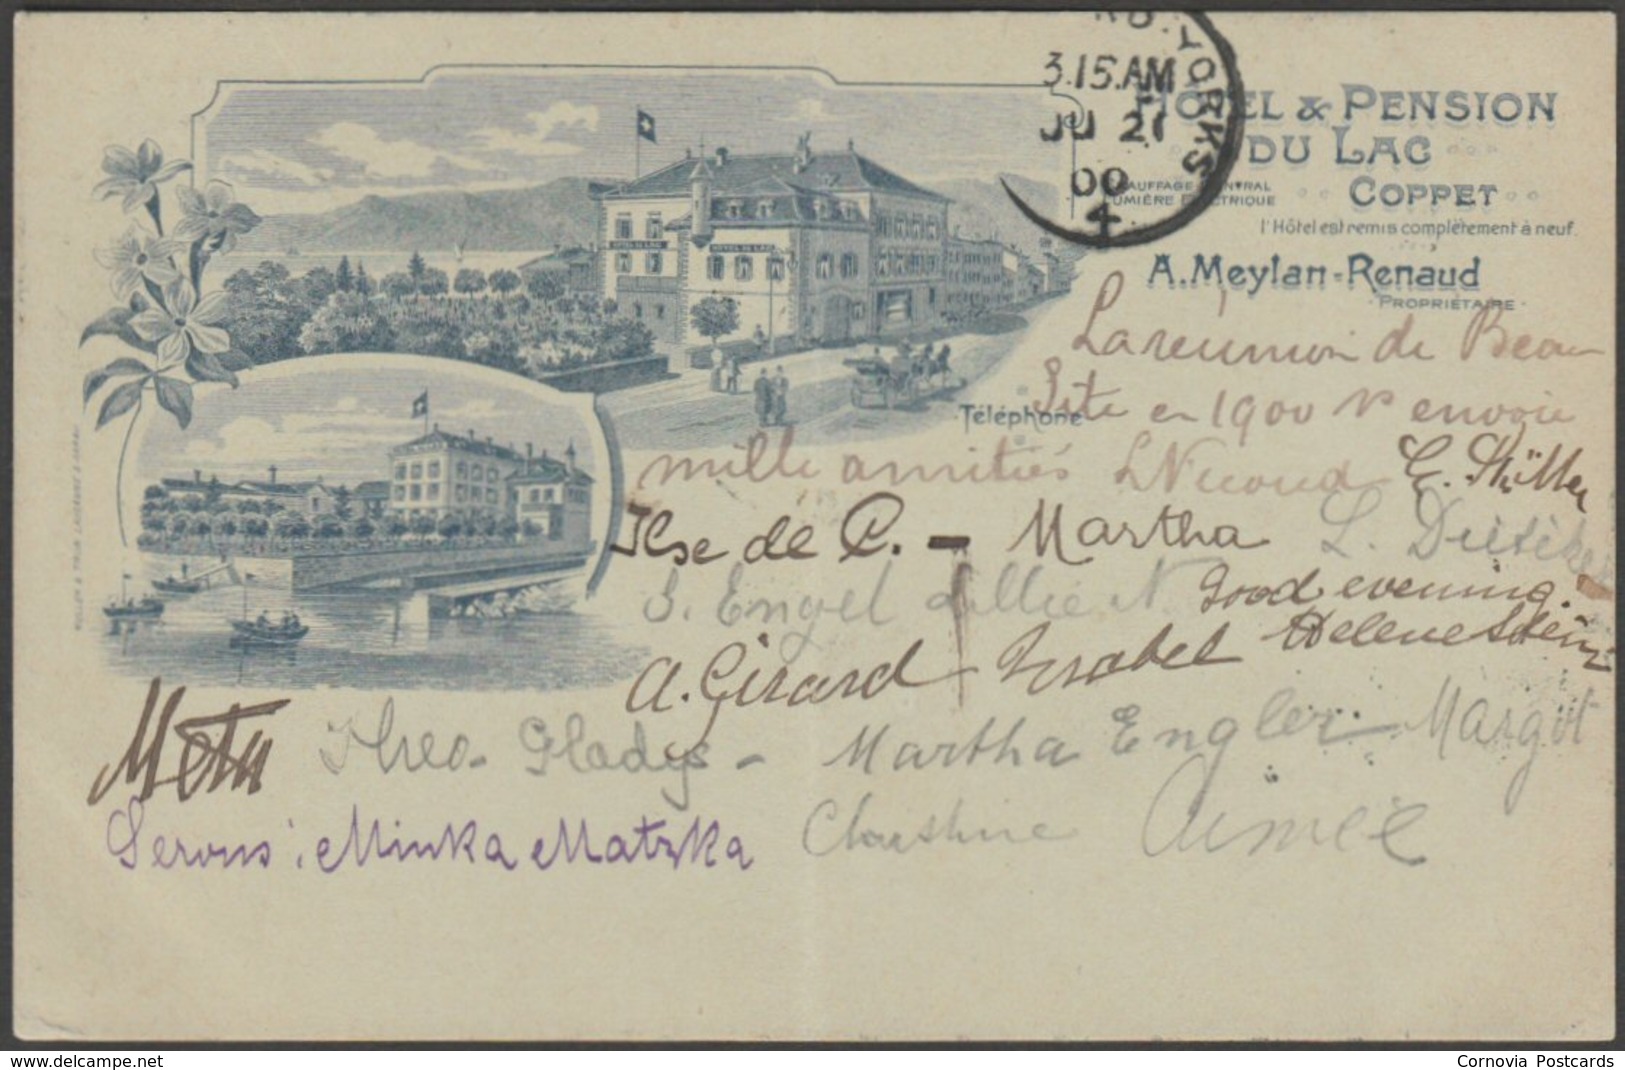 RD. YORKS
3.15 AM
JU 21
00
4
HOTEL & PENSION
DU LAC
COPPET
CHAUFFAGE CENTRAL
LUMIÈRE ELECTRIQUE
l'Hôtel est remis complètement à neuf.
A. Meylan-Renaud
PROPRIÉTAIRE
HOTEL DU LAC
HOTEL DU LAC
Téléphone
La réunion de Beau
Site en 1900 vs envoie
mille amitiés
Ilse de C. - Martha L.
S. Engel Lillie N. Good evening.
A. Girard - Isabel Helene
Meta Theo - Gladys - Martha Engler - Margot
Servus: Minka Matzka Christine Aimée
delcampe.net
Cornovia Postcards